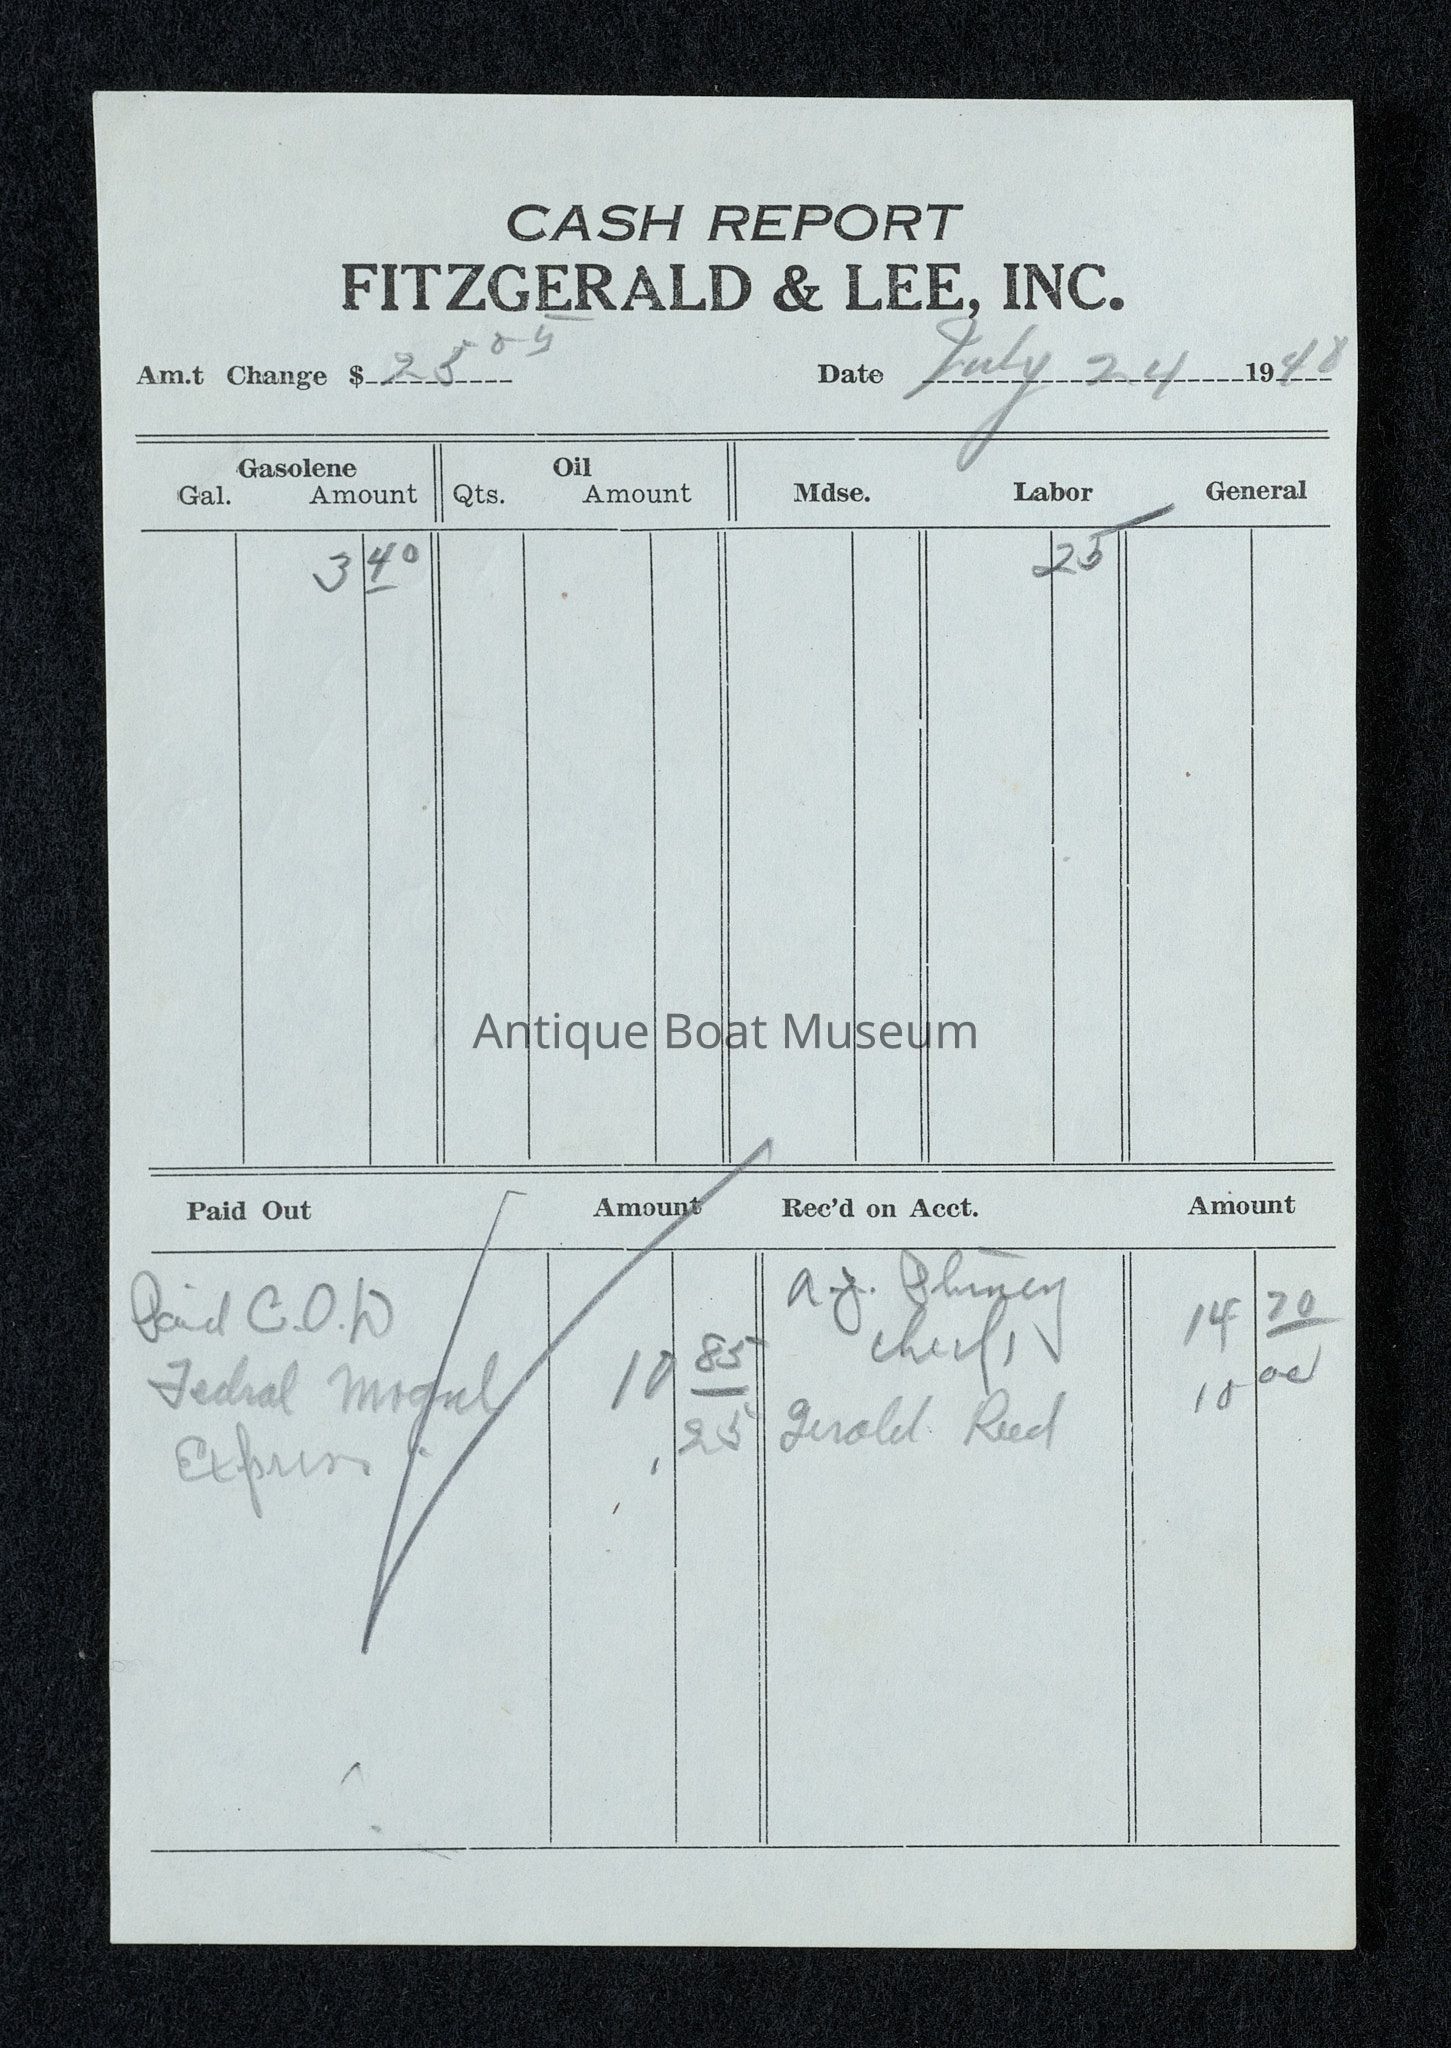 CASH REPORT
FITZGERALD & LEE, INC.
Am.t Change $ 25 05 Date July 24 1948
Gasolene Oil
Gal. Amount Qts. Amount Mdse. Labor General
3 40 25
Antique Boat Museum
Paid Out Amount Rec'd on Acct. Amount
Paid C.O.D A.J. 14 70
Fedral Mogul 10 85 10 00
Express 25 Gerald Reed